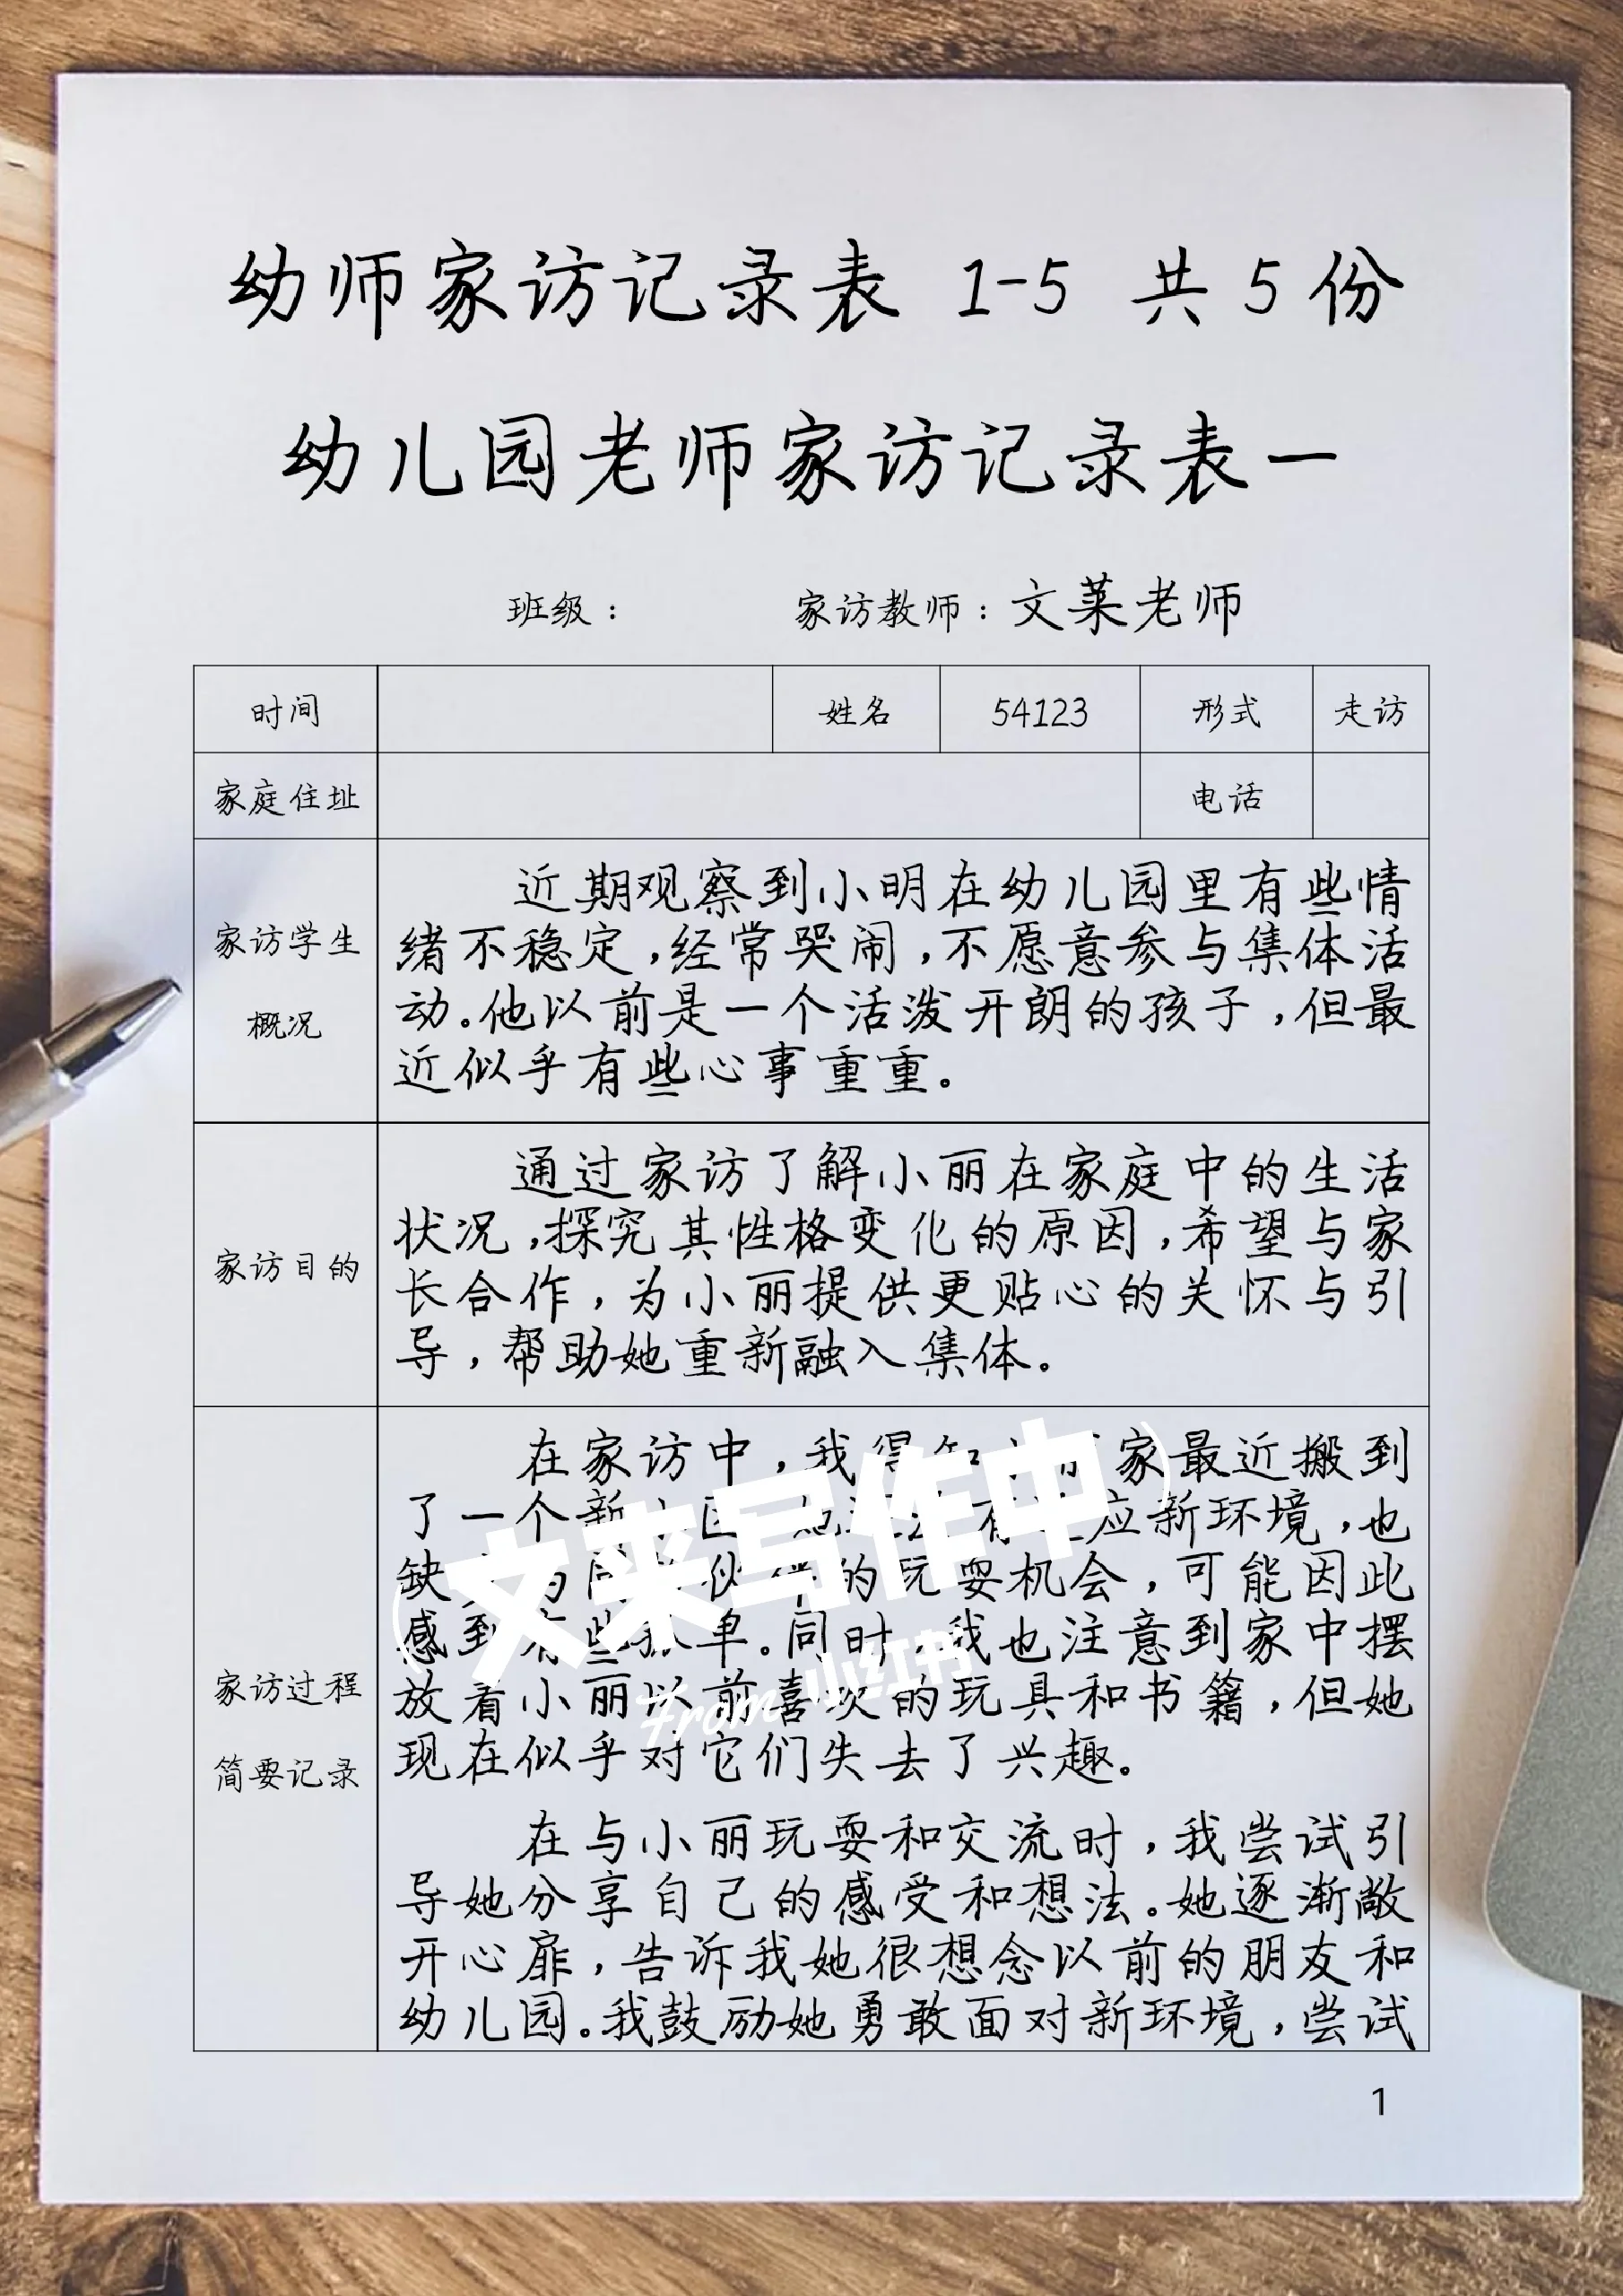 幼师家访记录表 1-5 共 5 份
幼儿园老师家访记录表一
班级： 家访教师：文莱老师
时间 姓名 54123 形式 走访
家庭住址 电话
家访学生
概况
近期观察到小明在幼儿园里有些情
绪不稳定，经常哭闹，不愿意参与集体活
动。他以前是一个活泼开朗的孩子，但最
近似乎有些心事重重。
家访目的
通过家访了解小丽在家庭中的生活
状况，探究其性格变化的原因，希望与家
长合作，为小丽提供更贴心的关怀与引
导，帮助她重新融入集体。
家访过程
简要记录
在家访中，我得知 家最近搬到
了一个新 应新环境，也
缺 伙伴的玩耍机会，可能因此
感到有些孤单。同时 我也注意到家中摆
放着小丽以前喜欢的玩具和书籍，但她
现在似乎对它们失去了兴趣。
在与小丽玩耍和交流时，我尝试引
导她分享自己的感受和想法。她逐渐敞
开心扉，告诉我她很想念以前的朋友和
幼儿园。我鼓励她勇敢面对新环境，尝试
文来写作中
From 小红书
1